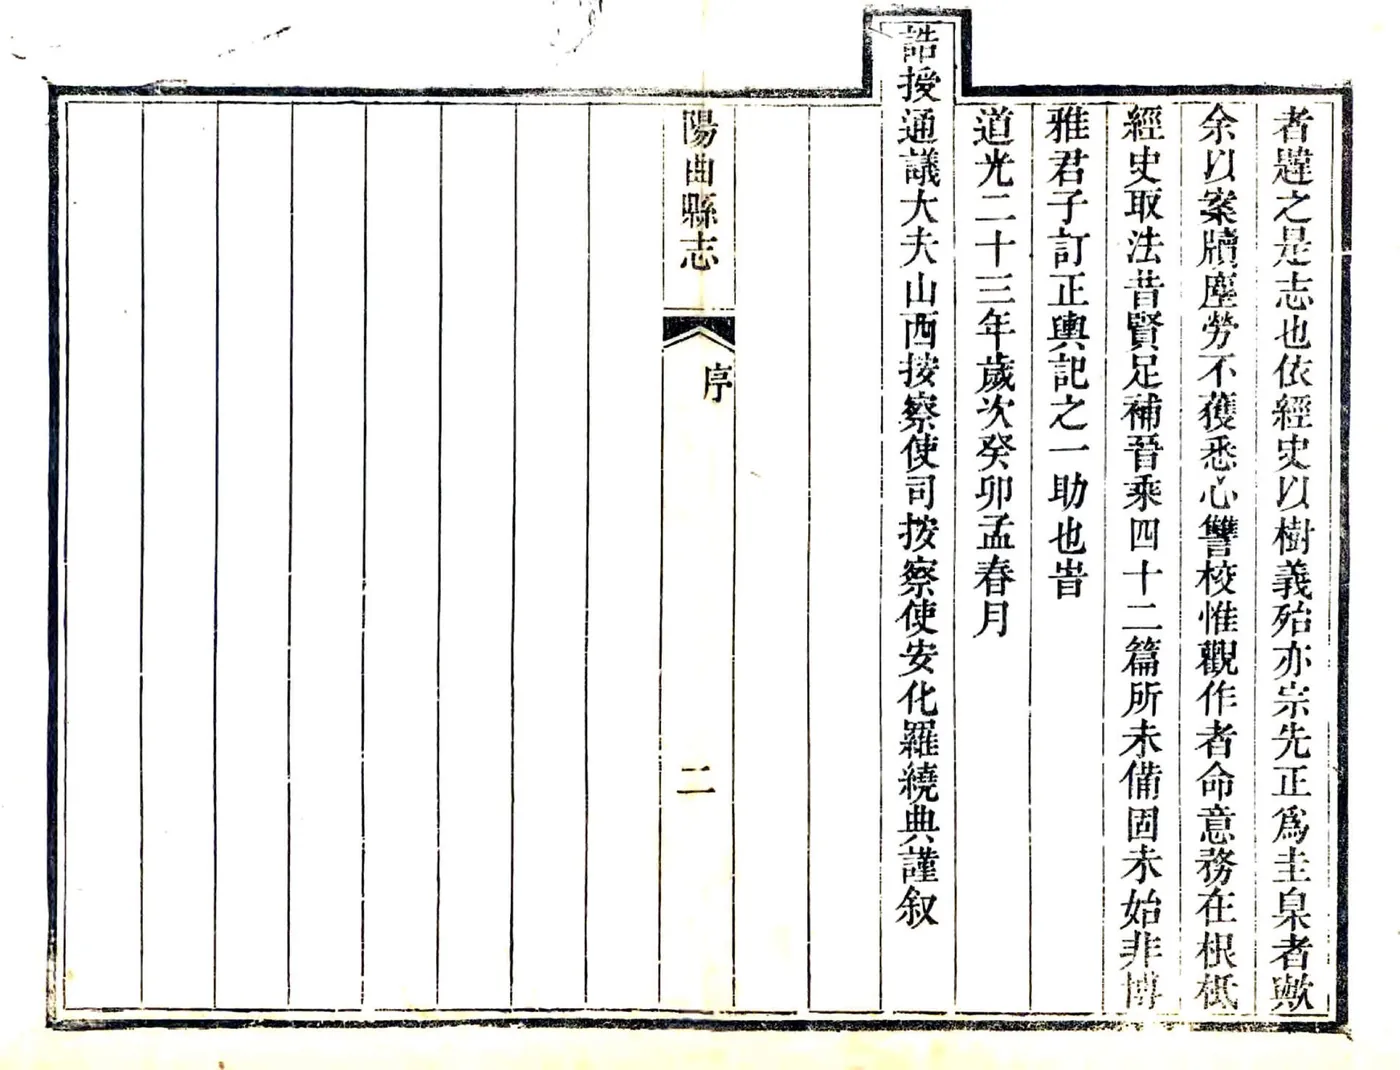 者韙之是志也依經史以樹義殆亦宗先正爲圭臬者歟
余以案牘塵勞不獲悉心讐校惟觀作者命意務在根柢
經史取法昔賢足補晉乘四十二篇所未備固未始非博
雅君子訂正輿記之一助也旹
道光二十三年歲次癸卯孟春月
誥授通議大夫山西按察使司按察使安化羅繞典謹叙
陽曲縣志
序
二